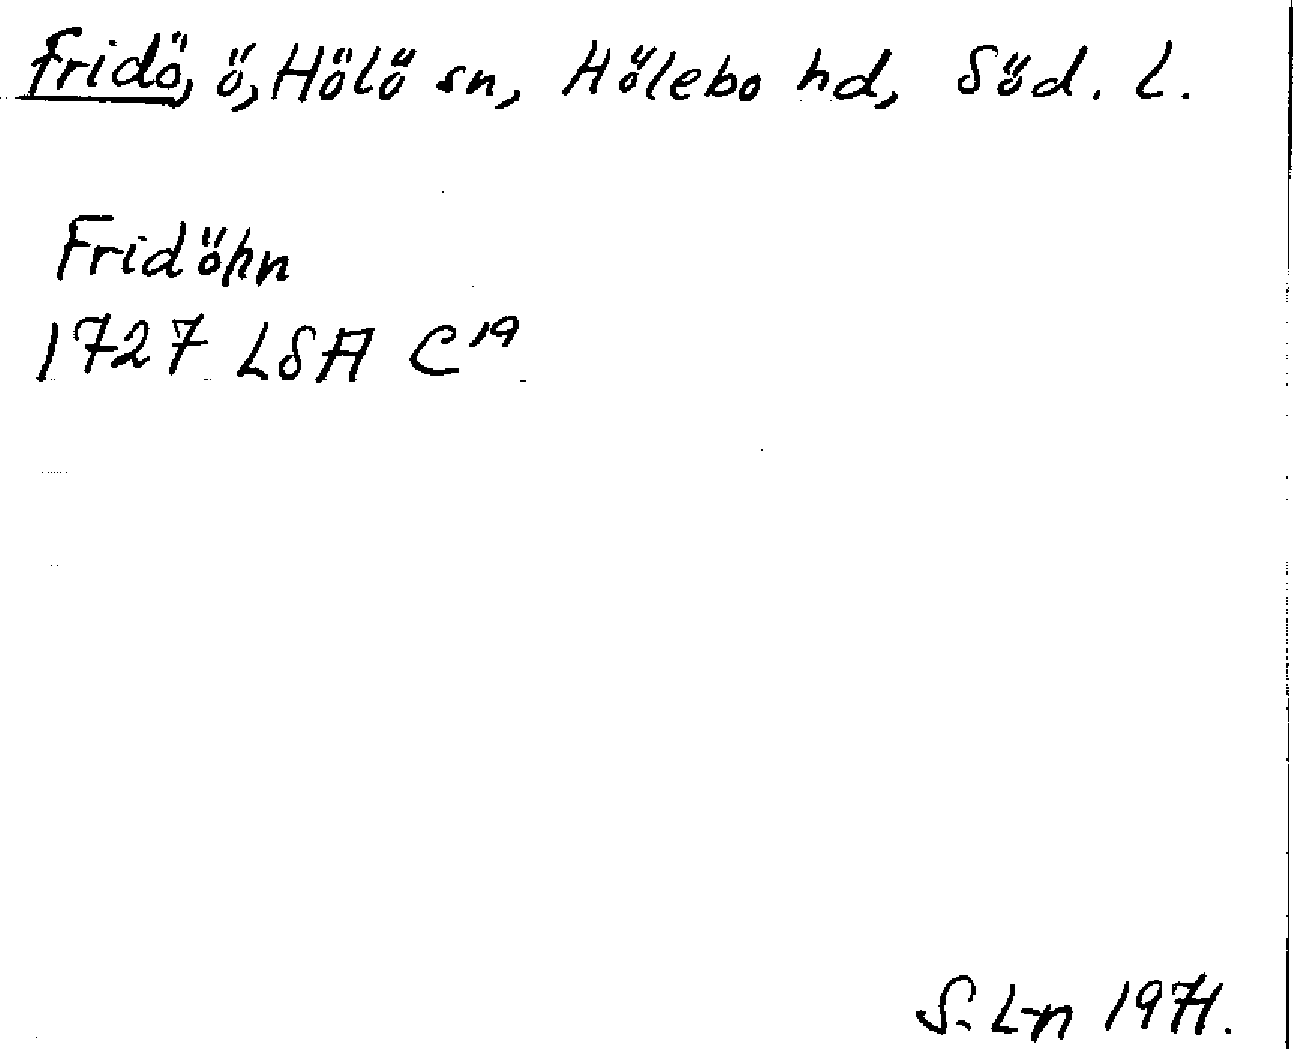 Fridö, ö, Hölö sn, Hölebo hd, Söd. L.
Fridöhn
1727 LSA C19
S. L-n 1971.